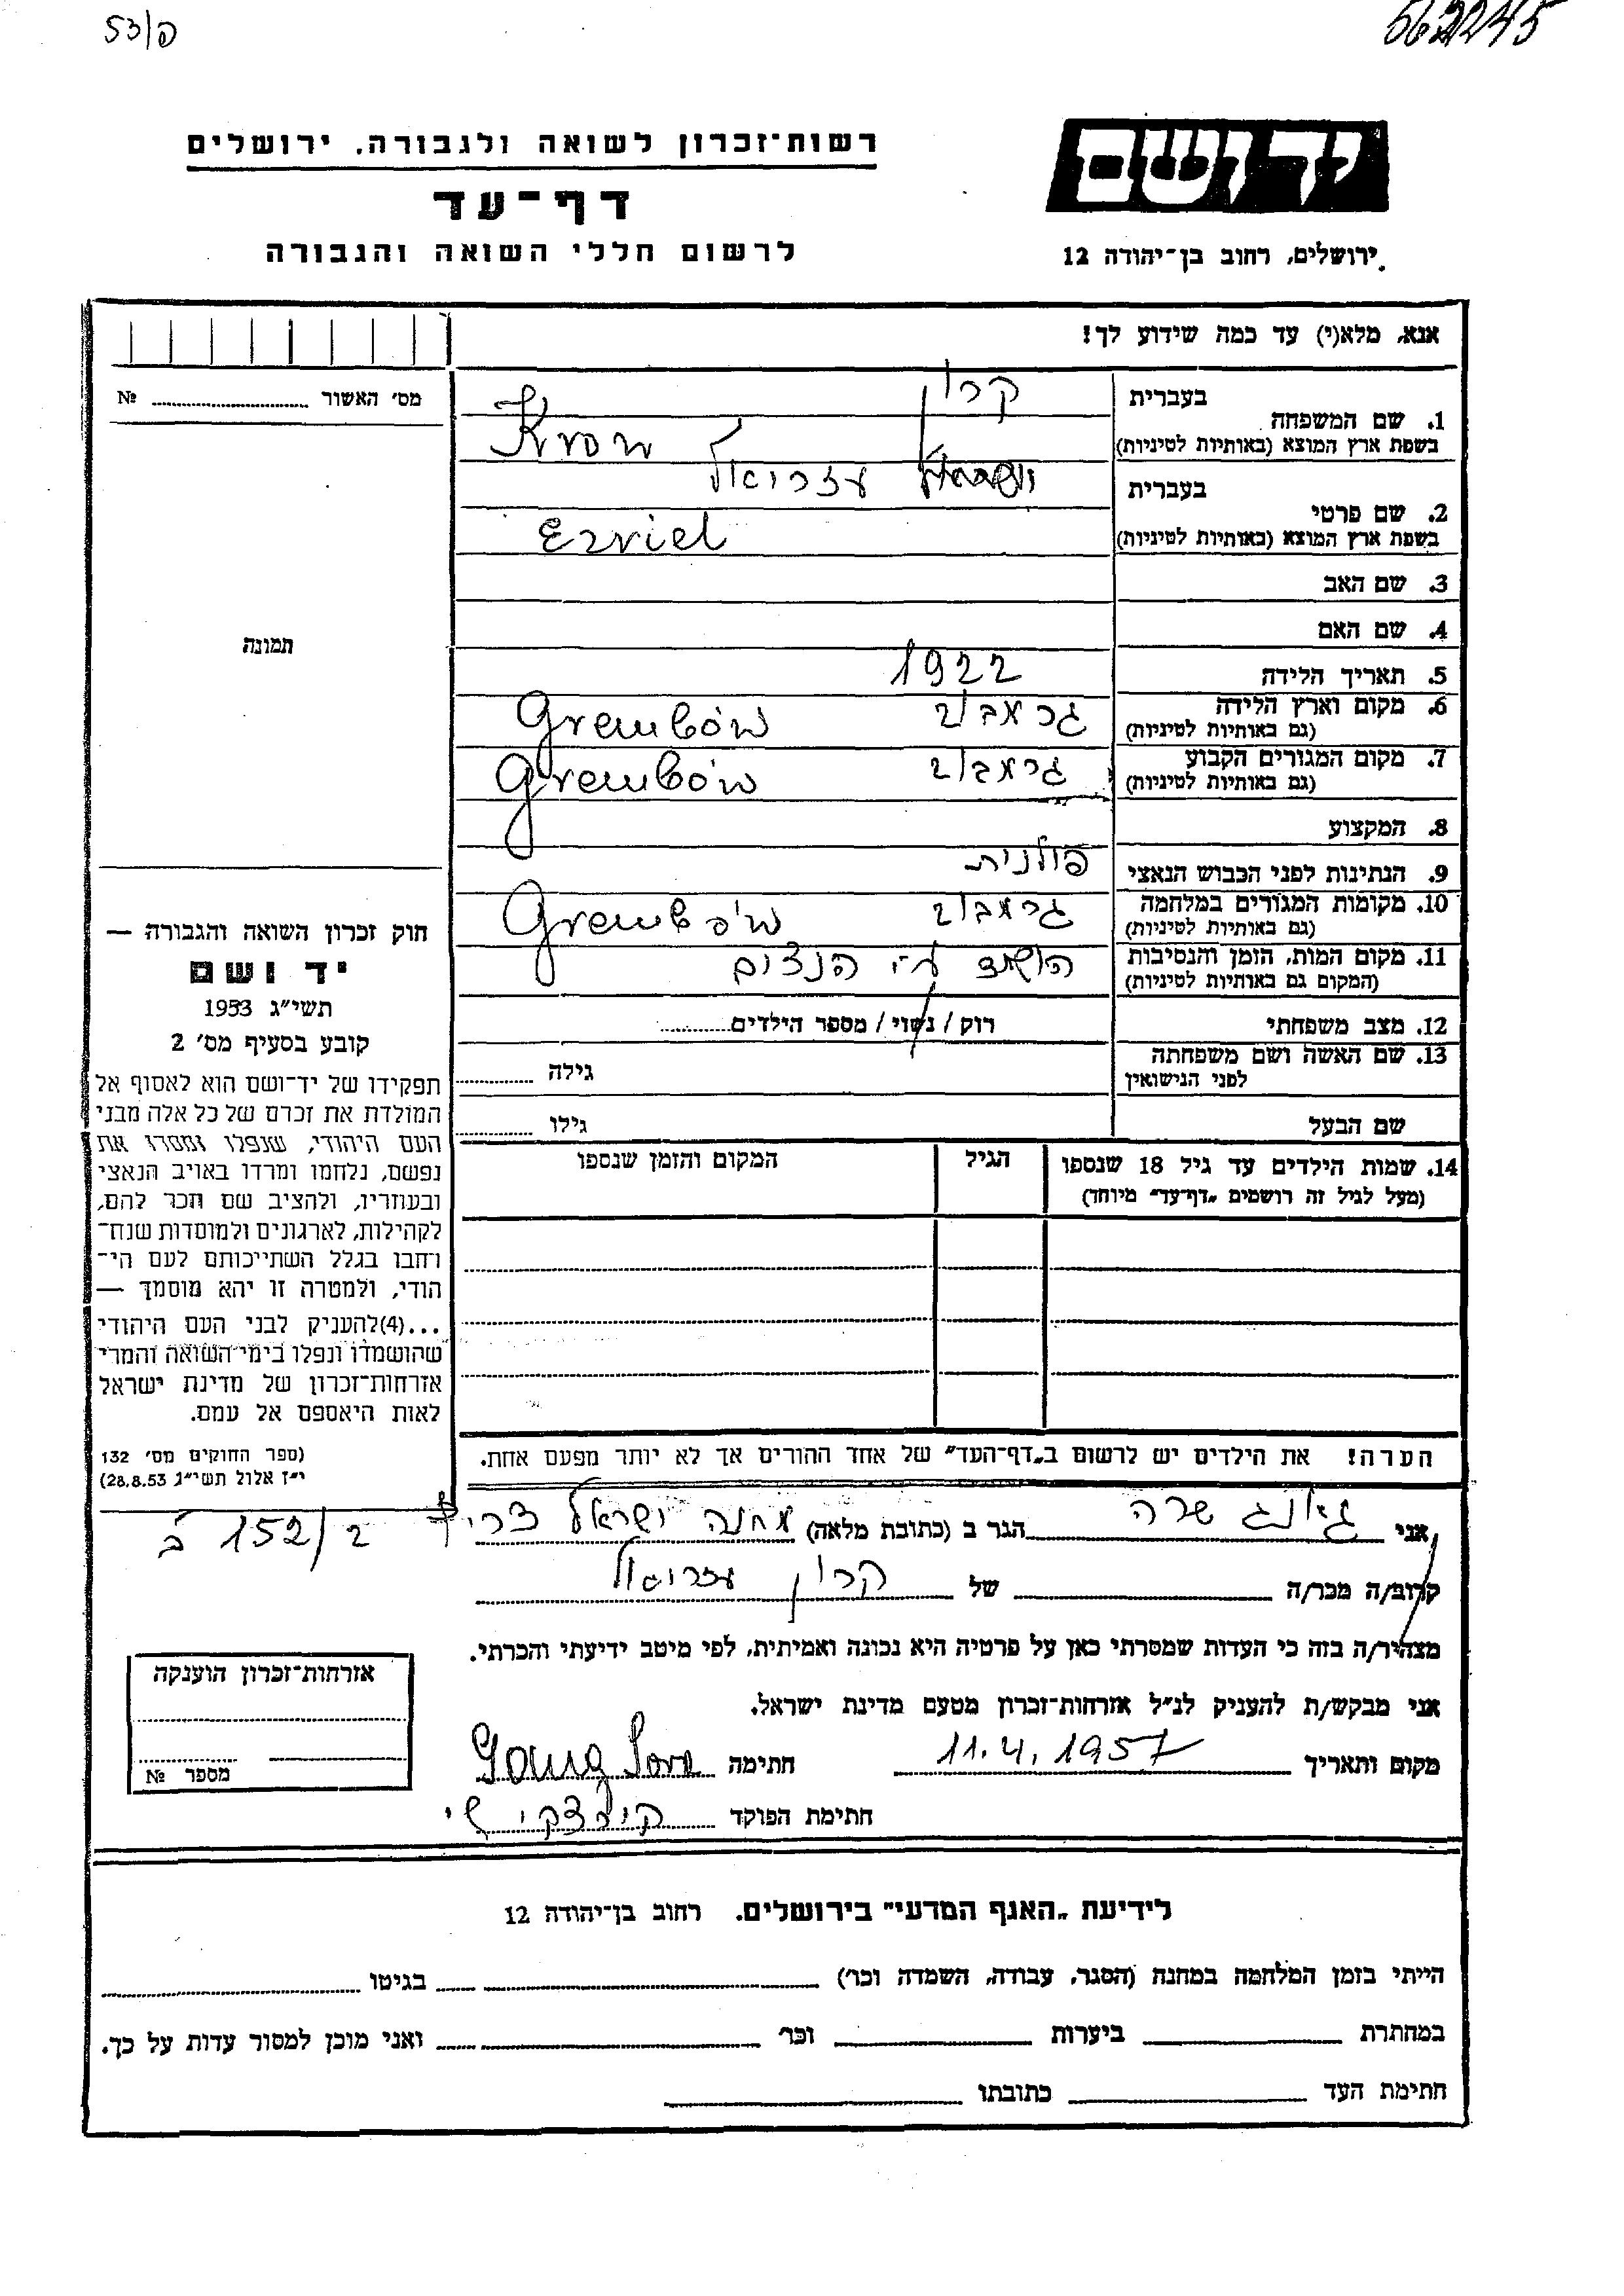 53/פ
562245
יד ושם
ירושלים, רחוב בן־יהודה 12
רשות־זכרון לשואה ולגבורה, ירושלים
דף־עד
לרשום חללי השואה והגבורה
אנא, מלא(י) עד כמה שידוע לך!
מס׳ האשור № 
1. שם המשפחה
בעברית קרון
בשפת ארץ המוצא (באותיות לטיניות) Kron
2. שם פרטי
בעברית עזריאל
בשפת ארץ המוצא (באותיות לטיניות) Ezriel
3. שם האב
4. שם האם
5. תאריך הלידה 1922
6. מקום וארץ הלידה גרמבוב Grembów
(גם באותיות לטיניות)
7. מקום המגורים הקבוע גרמבוב Grembów
(גם באותיות לטיניות)
8. המקצוע
9. הנתינות לפני הכבוש הנאצי פולנית
10. מקומות המגורים במלחמה גרמבוב Grembów
(גם באותיות לטיניות)
11. מקום המות, הזמן והנסיבות הושמד ע״י הנצים
(המקום גם באותיות לטיניות)
12. מצב משפחתי רוק / נשוי / מספר הילדים
13. שם האשה ושם משפחתה
לפני הנישואין גילה
שם הבעל גילו
14. שמות הילדים עד גיל 18 שנספו הגיל המקום והזמן שנספו
(מעל לגיל זה רושמים „דף־עד״ מיוחד)
הערה! את הילדים יש לרשום ב„דף־העד״ של אחד ההורים אך לא יותר מפעם אחת.
תמונה
חוק זכרון השואה והגבורה —
יד ושם
תשי״ג 1953
קובע בסעיף מס׳ 2
תפקידו של יד־ושם הוא לאסוף אל
המולדת את זכרם של כל אלה מבני
העם היהודי, שנפלו ומסרו את
נפשם, נלחמו ומרדו באויב הנאצי
ובעוזריו, ולהציב שם וזכר להם,
לקהילות, לארגונים ולמוסדות שנח־
רחבו בגלל השתייכותם לעם הי־
הודי, ולמטרה זו יהא מוסמך —
...(4)להעניק לבני העם היהודי
שהושמדו ונפלו בימי השואה והמרי
אזרחות־זכרון של מדינת ישראל
לאות היאספם אל עמם.
(ספר החוקים מס׳ 132
י״ז אלול תשי״ג 28.8.53)
אני גאנג שרה הגר ב (כתובת מלאה) מחנה ישראל צריף
152/2 ב
קרוב/ה מכר/ה של קרון עזריאל
מצהיר/ה בזה כי העדות שמסרתי כאן על פרטיה היא נכונה ואמיתית, לפי מיטב ידיעתי והכרתי.
אני מבקש/ת להעניק לנ״ל אזרחות־זכרון מטעם מדינת ישראל.
מקום ותאריך 11.4.1957 חתימה Gang Sara
חתימת הפוקד
אזרחות־זכרון הוענקה
מספר №
לידיעת „האגף המדעי״ בירושלים. רחוב בן־יהודה 12
הייתי בזמן המלחמה במחנה (הסגר, עבודה, השמדה וכו׳) בגיטו
במחתרת ביערות וכו׳ ואני מוכן למסור עדות על כך.
חתימת העד כתובתו